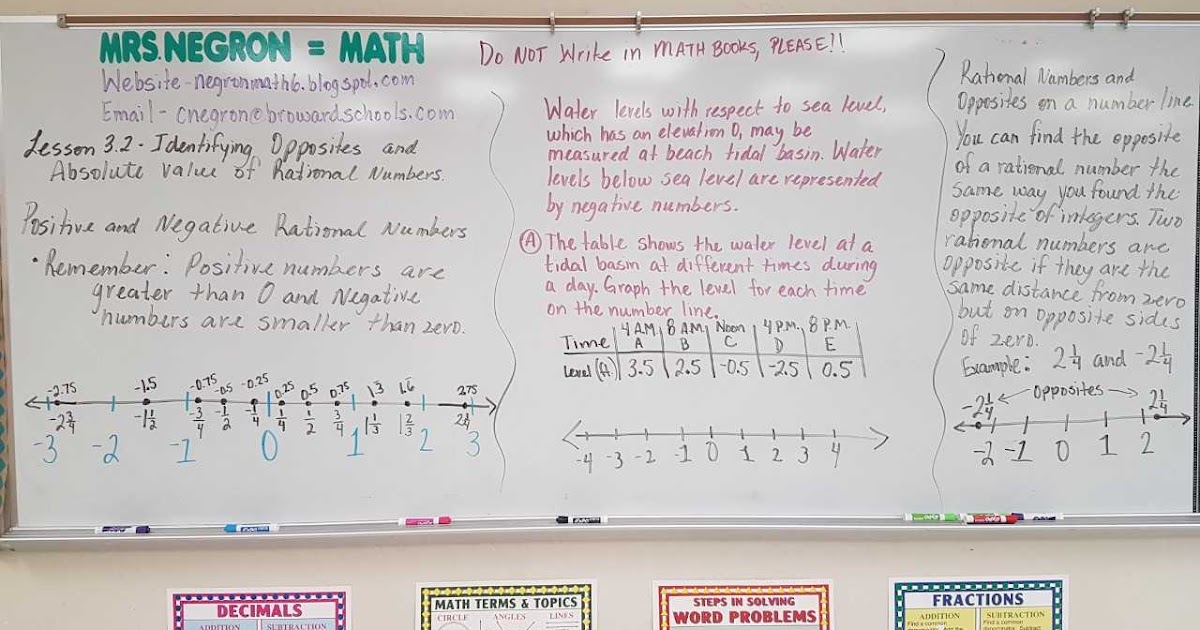 MRS. NEGRON = MATH
Website - negronmath6.blogspot.com
Email - cnegron@browardschools.com
Lesson 3.2 - Identifying Opposites and
Absolute Value of Rational Numbers.
Positive and Negative Rational Numbers
• Remember: Positive numbers are
greater than 0 and Negative
numbers are smaller than zero.
-2.75 -1.5 -0.75 -0.5 -0.25 0.25 0.5 0.75 1.3 1.6 2.75
-2 3/4 -1 1/2 -3/4 -1/2 -1/4 1/4 1/2 3/4 1 1/3 1 2/3
-3 -2 -1 0 1 2 3
Do NOT Write in MATH BOOKS, PLEASE!!
Water levels with respect to sea level,
which has an elevation 0, may be
measured at beach tidal basin. Water
levels below sea level are represented
by negative numbers.
(A) The table shows the water level at a
tidal basin at different times during
a day. Graph the level for each time
on the number line.
4 A.M. 8 A.M. Noon 4 P.M. 8 P.M.
Time A B C D E
Level (ft.) 3.5 2.5 -0.5 -2.5 0.5
-4 -3 -2 -1 0 1 2 3 4
Rational Numbers and
Opposites on a number line.
You can find the opposite
of a rational number the
same way you found the
opposite of integers. Two
rational numbers are
opposite if they are the
same distance from zero
but on opposite sides
of zero.
Example: 2 1/4 and -2 1/4
Opposites
-2 1/4 2 1/4
-2 -1 0 1 2
DECIMALS
ADDITION SUBTRACTION
MATH TERMS & TOPICS
CIRCLE ANGLES LINES
STEPS IN SOLVING
WORD PROBLEMS
FRACTIONS
ADDITION SUBTRACTION